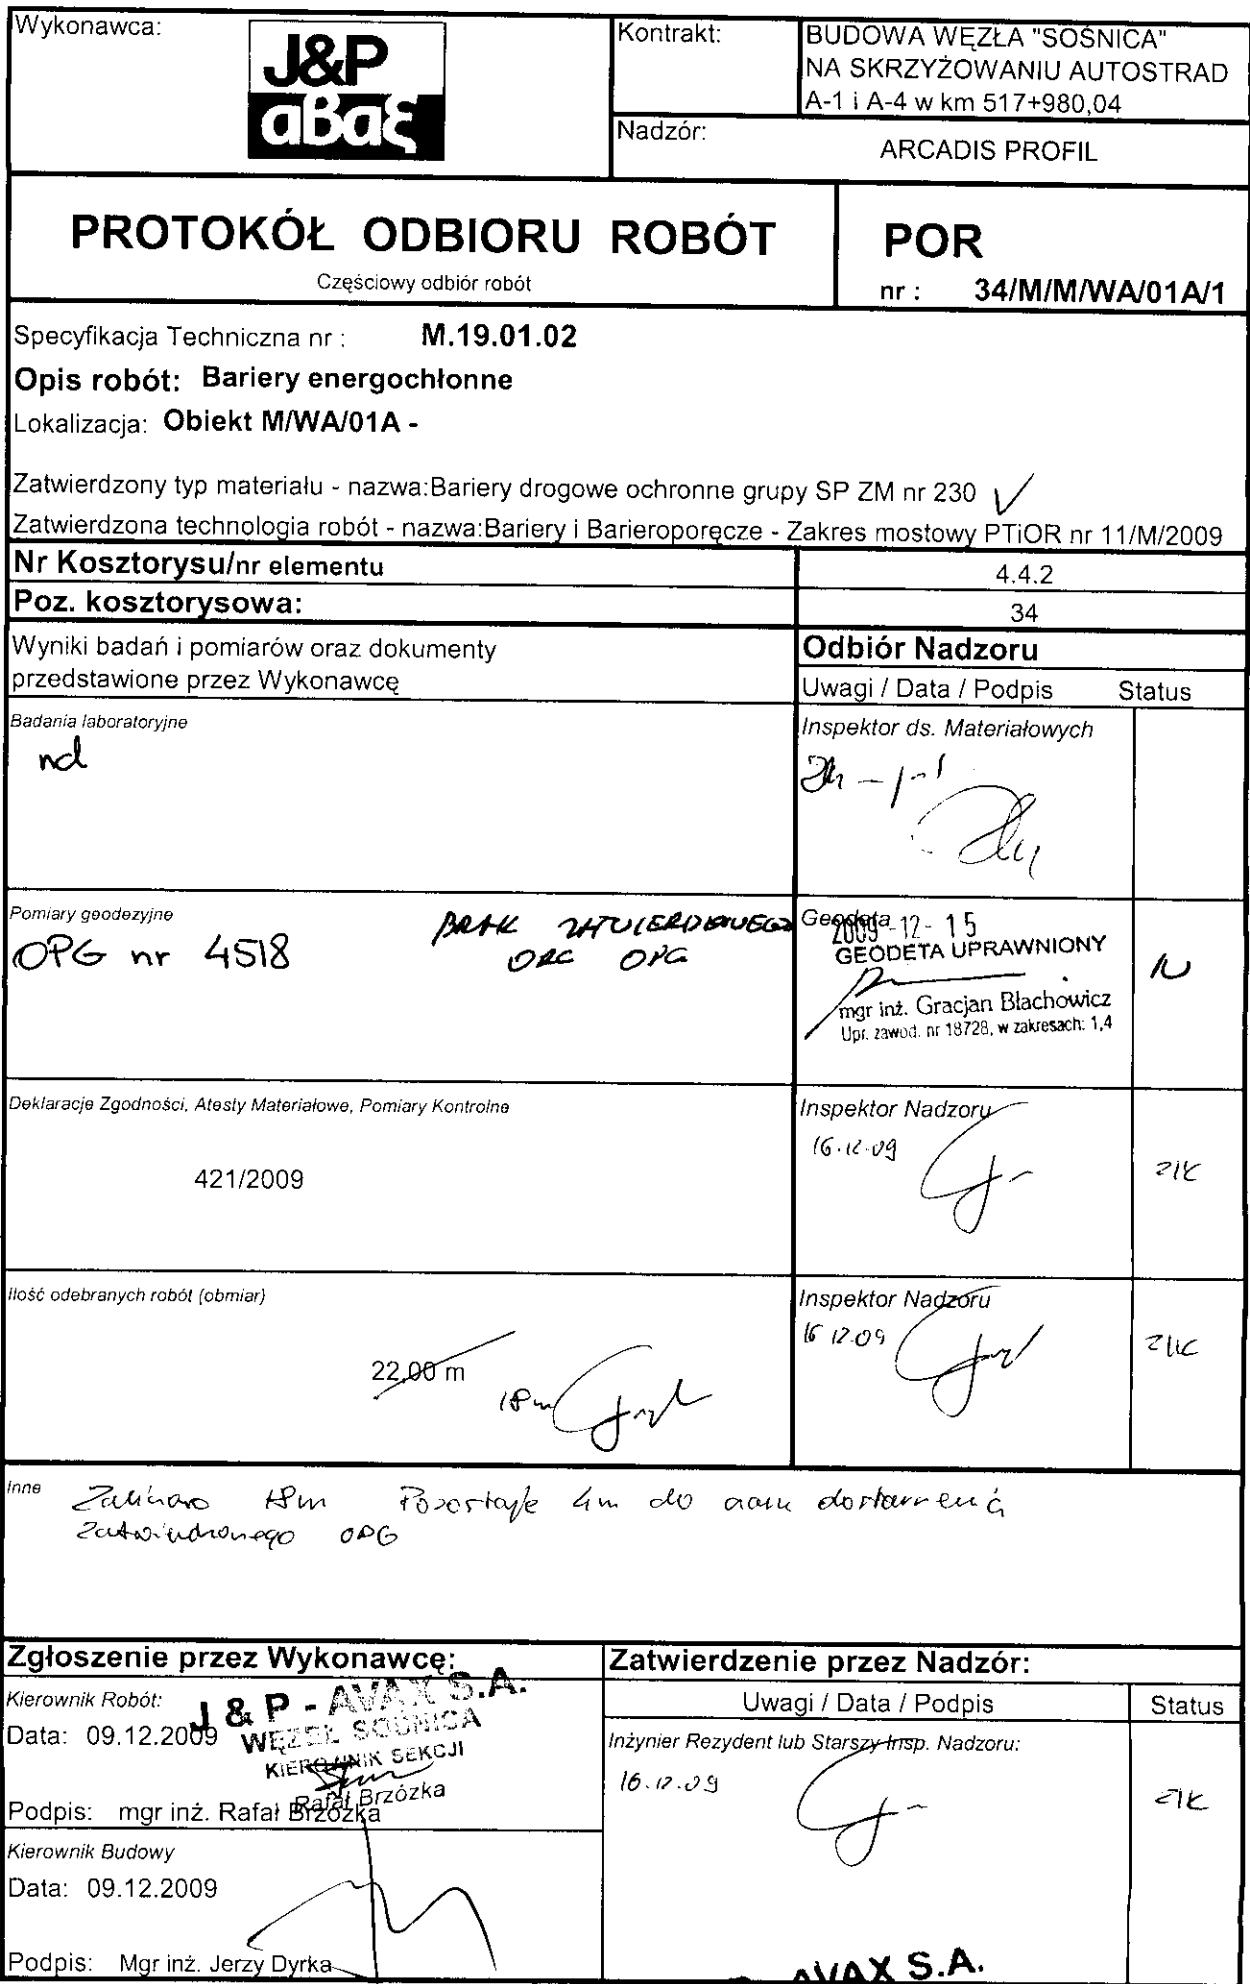 Wykonawca:
J&P
aBaξ
Kontrakt:
BUDOWA WĘZŁA "SOŚNICA"
NA SKRZYŻOWANIU AUTOSTRAD
A-1 i A-4 w km 517+980,04
Nadzór:
ARCADIS PROFIL
PROTOKÓŁ ODBIORU ROBÓT
Częściowy odbiór robót
POR
nr : 34/M/M/WA/01A/1
Specyfikacja Techniczna nr : M.19.01.02
Opis robót: Bariery energochłonne
Lokalizacja: Obiekt M/WA/01A -
Zatwierdzony typ materiału - nazwa:Bariery drogowe ochronne grupy SP ZM nr 230
Zatwierdzona technologia robót - nazwa:Bariery i Barieroporęcze - Zakres mostowy PTiOR nr 11/M/2009
Nr Kosztorysu/nr elementu 4.4.2
Poz. kosztorysowa: 34
Wyniki badań i pomiarów oraz dokumenty
przedstawione przez Wykonawcę
Odbiór Nadzoru
Uwagi / Data / Podpis Status
Badania laboratoryjne
nd
Inspektor ds. Materiałowych
Pomiary geodezyjne
OPG nr 4518
BRAK ZATWIERDZONEGO
OPG
Geodeta
2009-12-15
GEODETA UPRAWNIONY
mgr inż. Gracjan Błachowicz
Upr. zawod. nr 18728, w zakresach: 1,4
N
Deklaracje Zgodności, Atesty Materiałowe, Pomiary Kontrolne
421/2009
Inspektor Nadzoru
16.12.09
Ilość odebranych robót (obmiar)
22,00 m
18m
Inspektor Nadzoru
16 12.09
Inne
18m Pozostaje 4m do dostarczenia
zatwierdzonego OPG
Zgłoszenie przez Wykonawcę:
Kierownik Robót:
Data: 09.12.2009
J & P - AVAX S.A.
WĘZEŁ SOŚNICA
KIEROWNIK SEKCJI
Rafał Brzózka
Podpis: mgr inż. Rafał Brzózka
Kierownik Budowy
Data: 09.12.2009
Podpis: Mgr inż. Jerzy Dyrka
Zatwierdzenie przez Nadzór:
Uwagi / Data / Podpis Status
Inżynier Rezydent lub Starszy Insp. Nadzoru:
16.12.09
AVAX S.A.